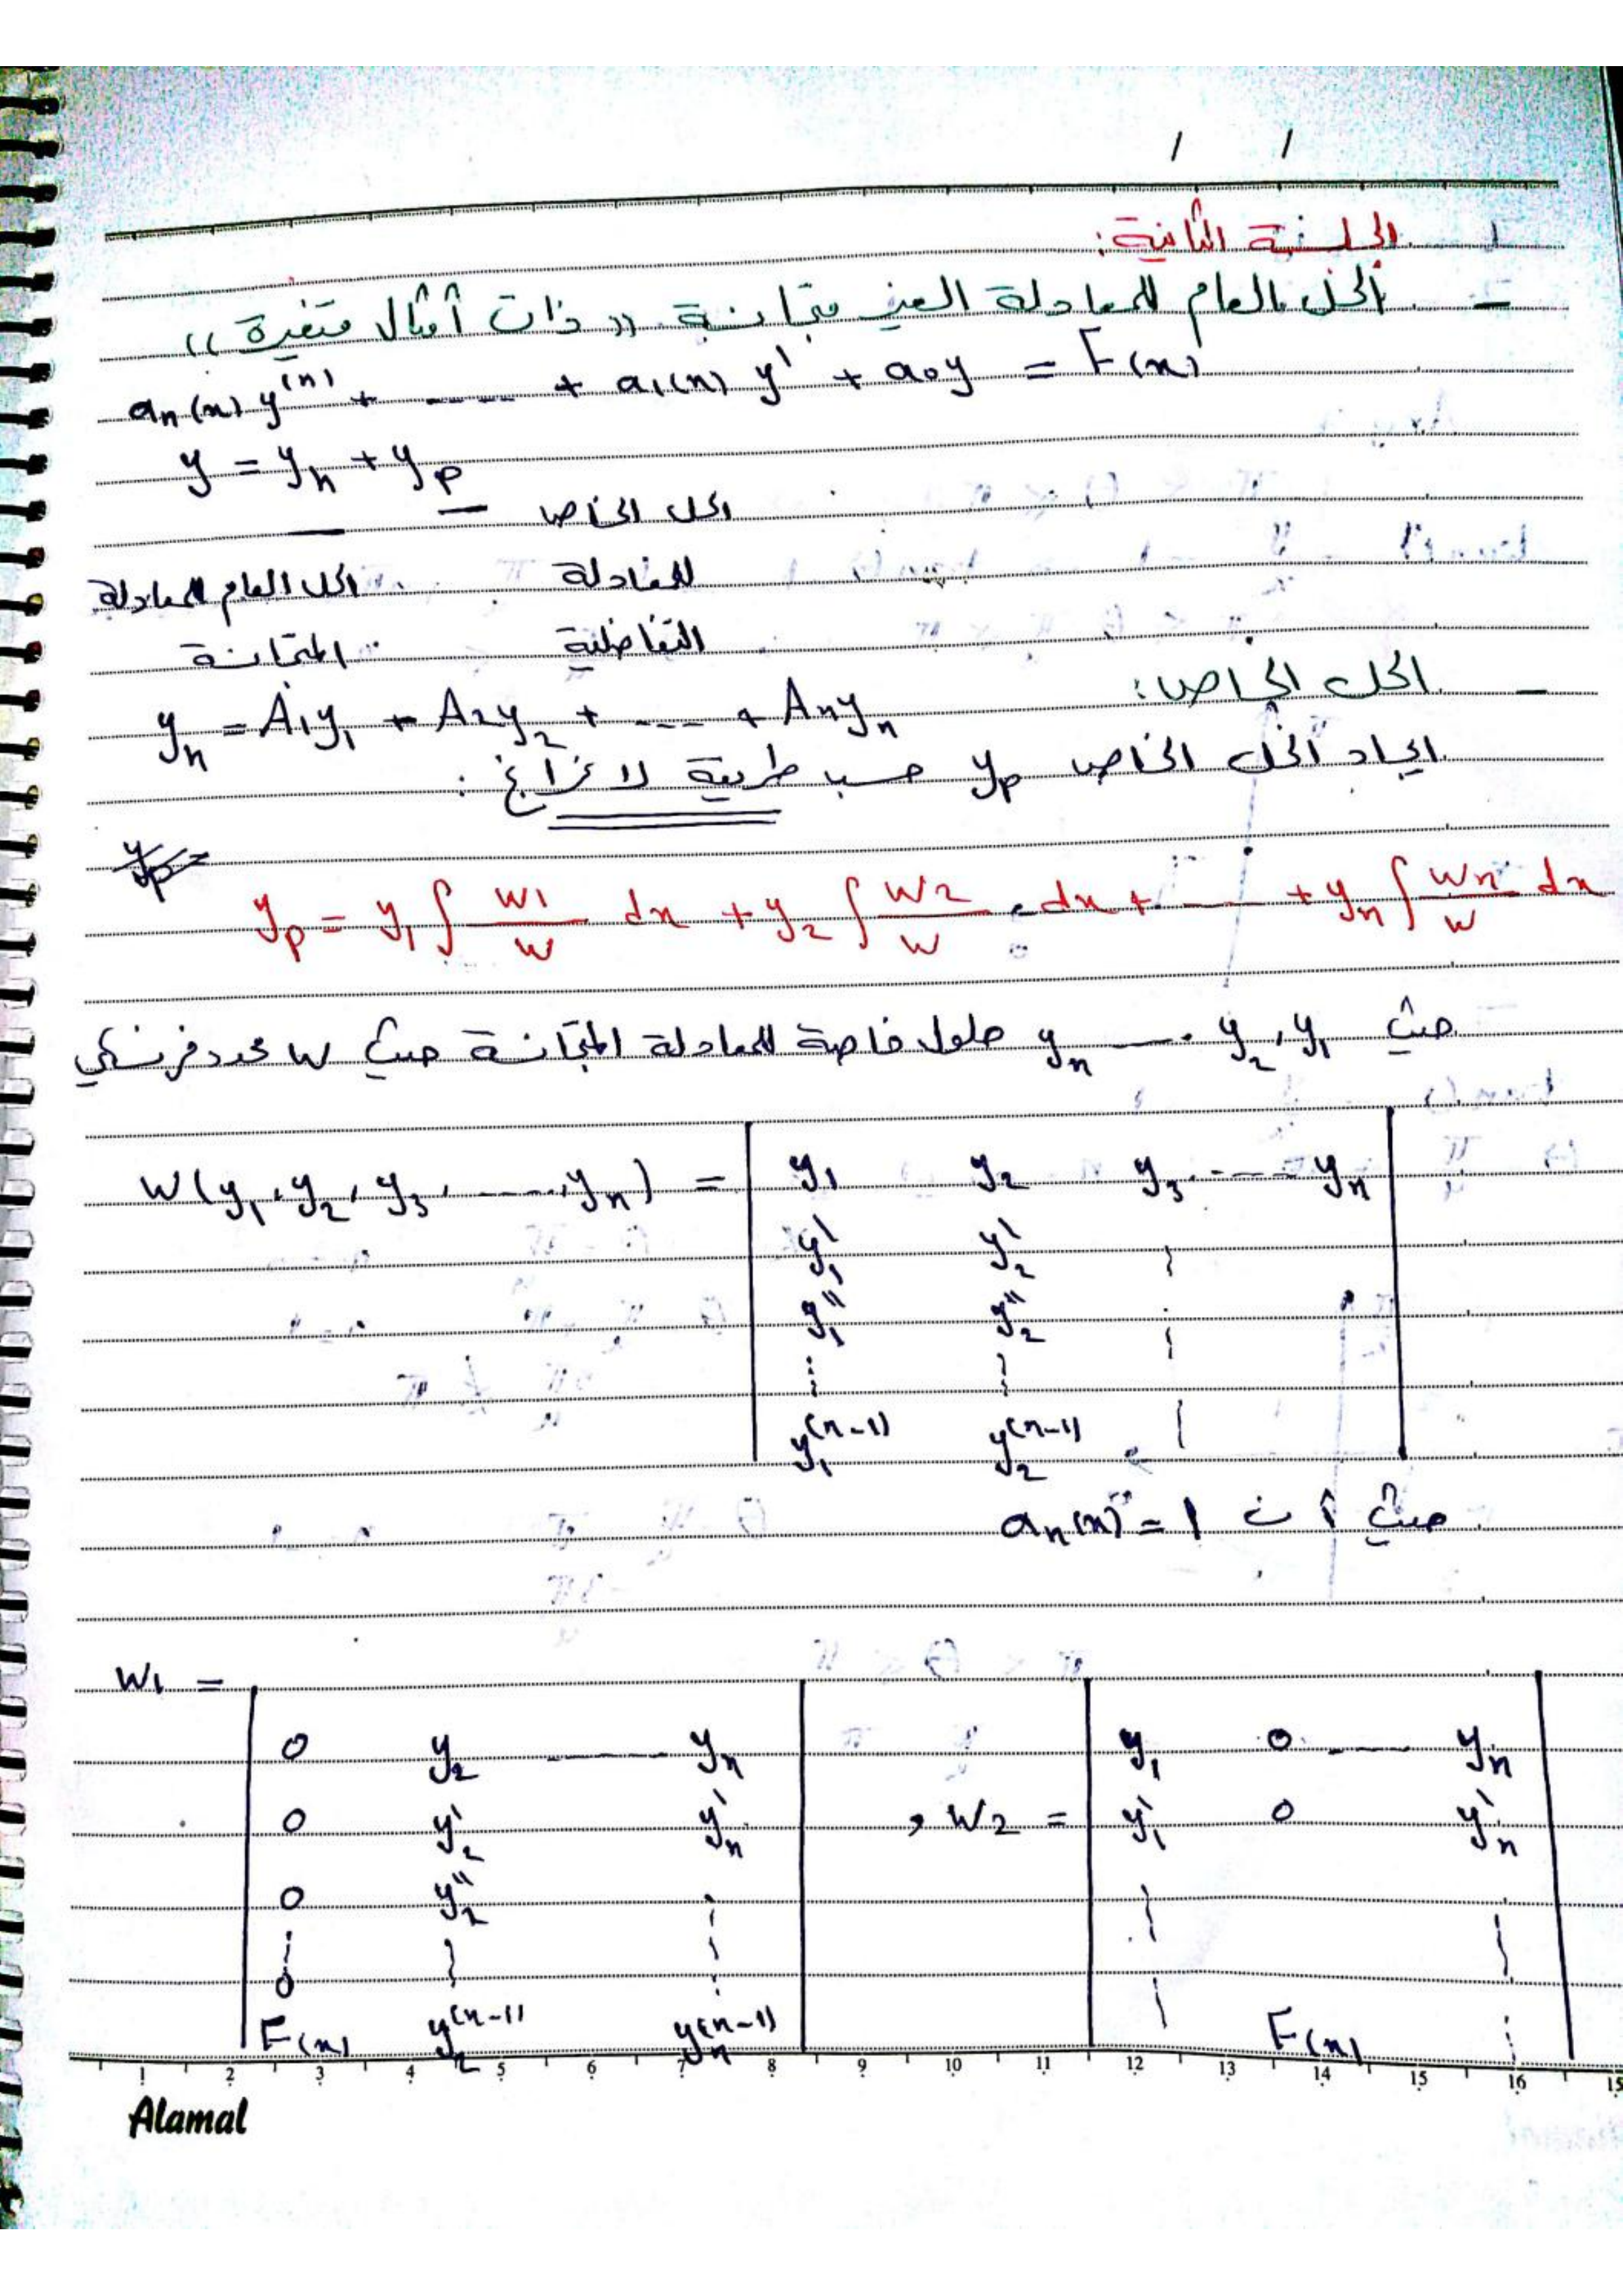 / /
الجلسة الثانية:
- الحل العام للمعادلة الغير متجانسة «ذات أمثال متغيرة»
aₙ(x) y⁽ⁿ⁾ + ---- + a₁(x) y' + a₀y = F(x)
y = yₕ + yₚ
الحل الخاص
للمعادلة الحل العام للمعادلة
التفاضلية المتجانسة
- الحل الخاص:
yₕ = A₁y₁ + A₂y₂ + --- + Aₙyₙ
ايجاد الحل الخاص yₚ حسب طريقة لاغرانج:
yₚ =
yₚ = y₁ ∫ W1/W dx + y₂ ∫ W2/W dx + --- + yₙ ∫ Wn/W dx
حيث y₁, y₂ ---- yₙ حلول خاصة للمعادلة المتجانسة حيث W محدد فرنسكي
W(y₁, y₂, y₃, ----, yₙ) = | y₁ y₂ y₃ ---- yₙ |
y₁' y₂'
y₁'' y₂''
y₁⁽ⁿ⁻¹⁾ y₂⁽ⁿ⁻¹⁾
حيث أن aₙ(x) = 1
W1 =
| 0 y₂ ---- yₙ | | y₁ 0 ---- yₙ |
| 0 y₂' yₙ' | , W2 = | y₁' 0 yₙ' |
0 y₂''
0
F(x) y₂⁽ⁿ⁻¹⁾ yₙ⁽ⁿ⁻¹⁾ F(x)
1 2 3 4 5 6 7 8 9 10 11 12 13 14 15 16
Alamal